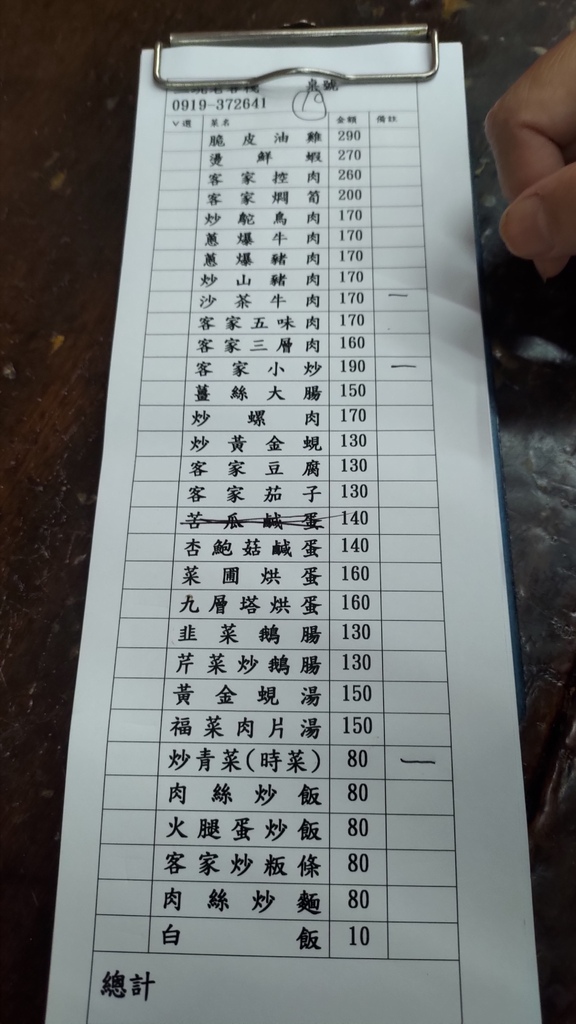 桌號
0919-372641
∨選 菜名 金額 備註
脆皮油雞 290
燙鮮蝦 270
客家控肉 260
客家燜筍 200
炒鴕鳥肉 170
蔥爆牛肉 170
蔥爆豬肉 170
炒山豬肉 170
沙茶牛肉 170 一
客家五味肉 170
客家三層肉 160
客家小炒 190 一
薑絲大腸 150
炒螺肉 170
炒黃金蜆 130
客家豆腐 130
客家茄子 130
苦瓜鹹蛋 140
杏鮑菇鹹蛋 140
菜圃烘蛋 160
九層塔烘蛋 160
韭菜鵝腸 130
芹菜炒鵝腸 130
黃金蜆湯 150
福菜肉片湯 150
炒青菜(時菜) 80 一
肉絲炒飯 80
火腿蛋炒飯 80
客家炒粄條 80
肉絲炒麵 80
白飯 10
總計